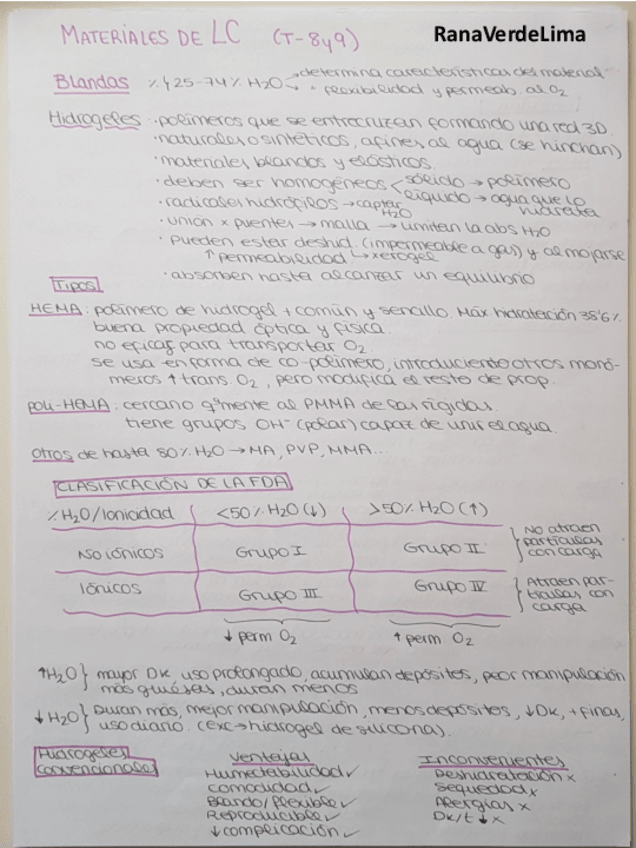 MATERIALES DE LC (T-8y9) RanaVerdeLima
Blandas % ∈ 25-74% H2O → determina características del material
→ " flexibilidad y permeab. al O2
Hidrogeles · polímeros que se entrecruzan formando una red 3D.
· naturales o sintéticos, afines al agua (se hinchan)
· materiales blandos y elásticos.
· deben ser homogéneos < sólido → polímero
líquido → agua que lo hidrata
· radicales hidrófilos → captar H2O
· unión x puentes → malla → limitan la abs H2O
· pueden estar deshid. (impermeable a gas) y al mojarse
↑ permeabilidad ↳ xerogel
· absorben hasta alcanzar un equilibrio
Tipos
HEMA: polímero de hidrogel + común y sencillo. Máx hidratación 38'6%
buena propiedad óptica y física.
no eficaz para transportar O2
se usa en forma de co-polímero, introduciendo otros monó-
meros ↑ trans. O2, pero modifica el resto de prop.
POLI-HEMA: cercano qªmente al PMMA de las rígidas.
tiene grupos OH⁻ (polar) capaz de unir el agua.
OTROS de hasta 80% H2O → MA, PVP, MMA...
CLASIFICACIÓN DE LA FDA
% H2O/Ionicidad <50% H2O (↓) >50% H2O (↑)
No iónicos Grupo I Grupo II } No atraen partículas con carga
Iónicos Grupo III Grupo IV } Atraen par-
tículas con carga
↓ perm O2 ↑ perm O2
↑H2O } mayor Dk, uso prolongado, acumulan depósitos, peor manipulación
más gruesas, duran menos
↓H2O } Duran más, mejor manipulación, menos depósitos, ↓Dk, + finas,
uso diario. (exc → hidrogel de silicona).
Hidrogeles convencionales
Ventajas Inconvenientes
Humectabilidad ✓ Deshidratación x
Comodidad ✓ Sequedad x
Blando/flexible ✓ Alergias x
Reproducible ✓ Dk/t ↓ x
↓ complicación ✓